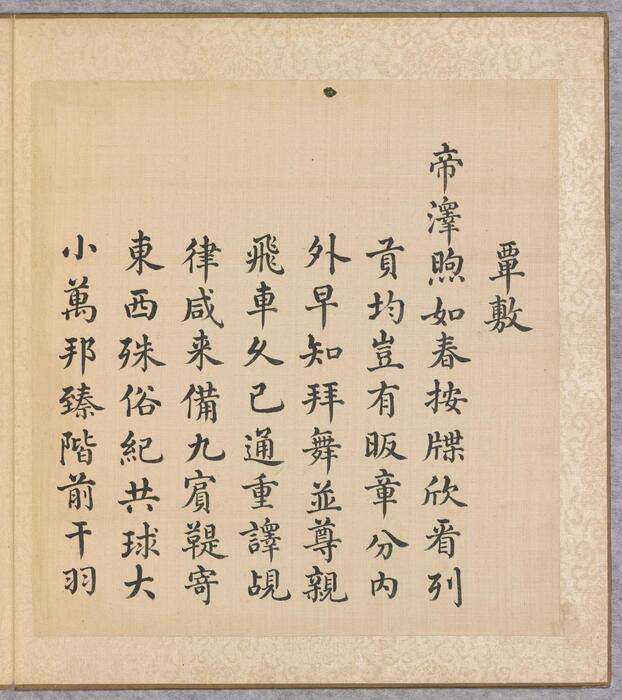 覃敷
帝澤煦如春按牒欣看列
貢均豈有昄章分內
外早知拜舞並尊親
飛車久已通重譯覘
律咸来備九賔鞮寄
東西殊俗紀共球大
小萬邦臻階前干羽